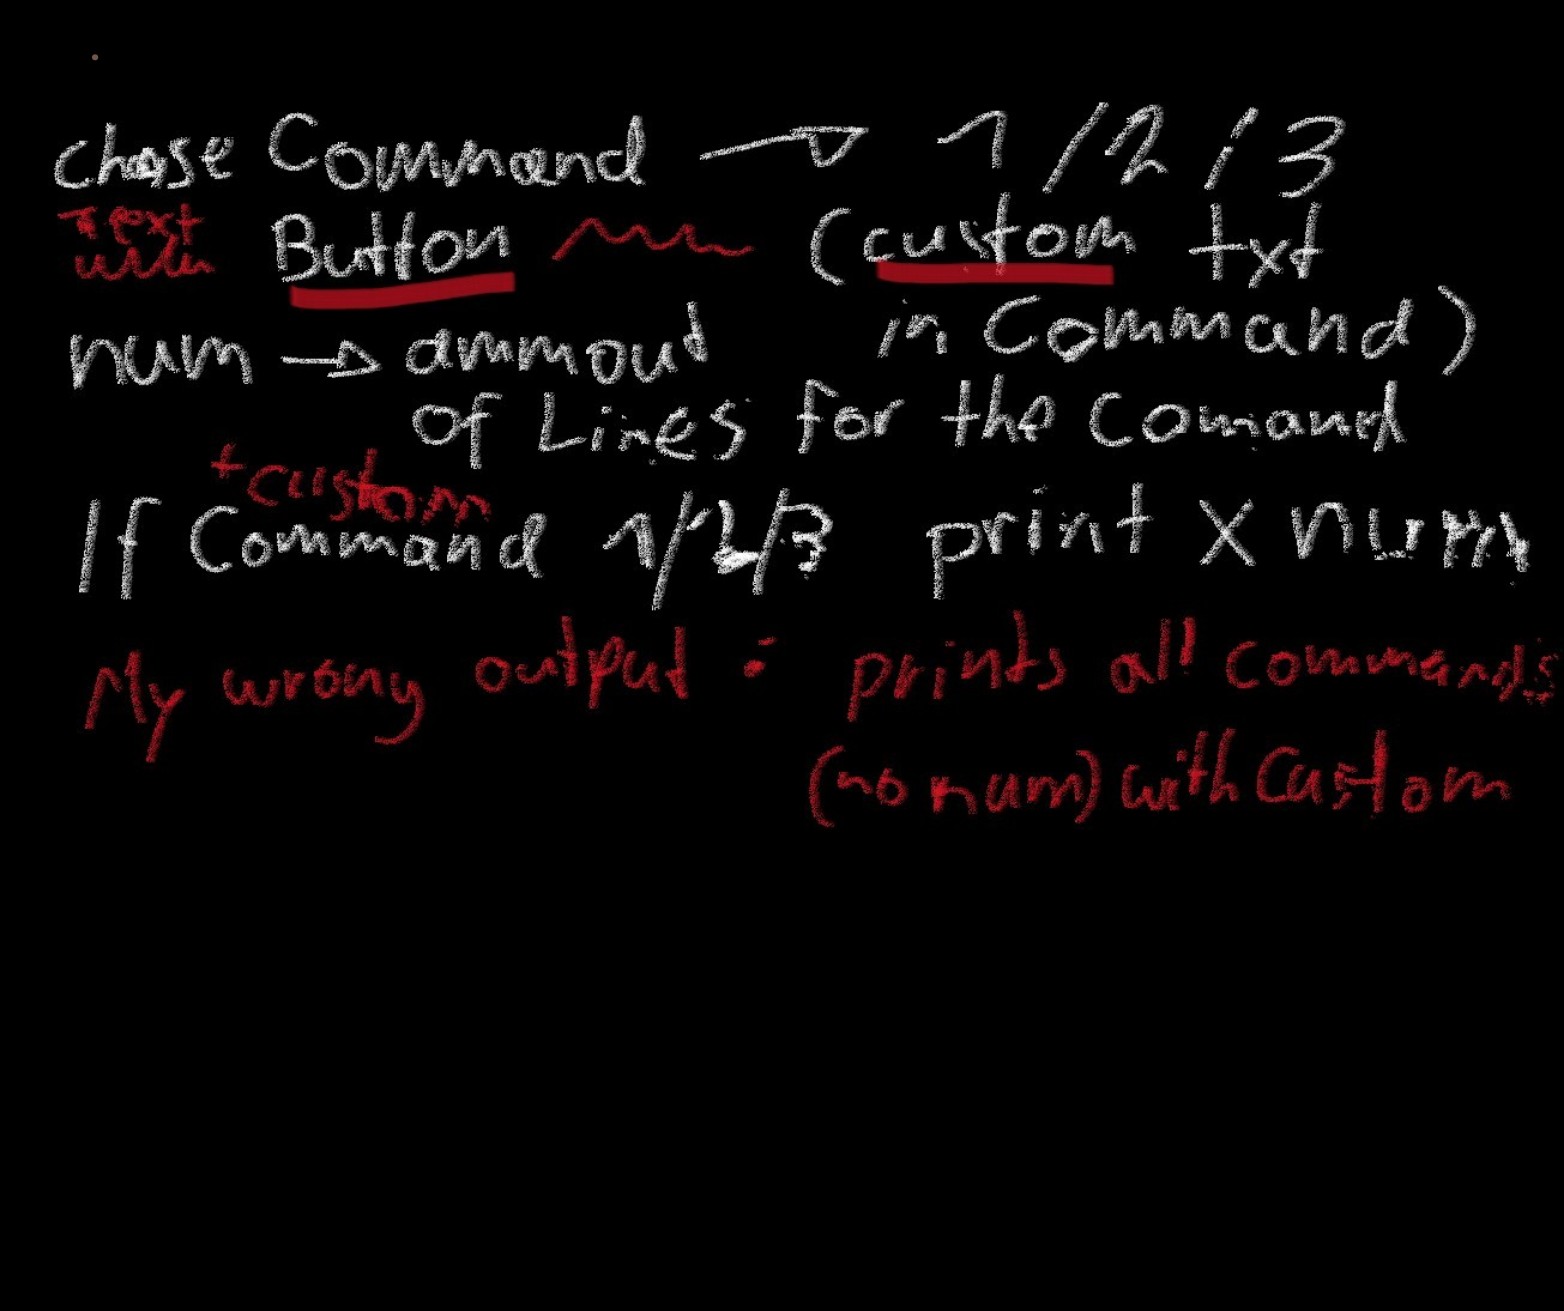 chose Command → 1/2/3
Text
Button (custom txt
num → ammout in Command)
of Lines for the Comand
+ custom
If Command 1/2/3 print x num
My wrong output : prints all commands
(no num) with Custom